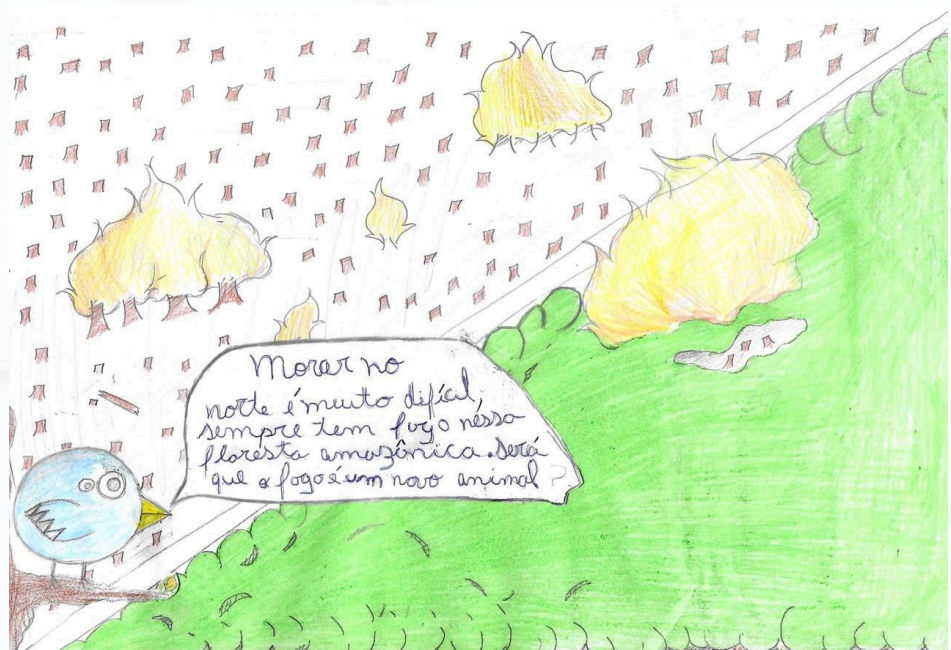 Morar no
norte é muito difícil,
sempre tem fogo nessa
floresta amazônica. Será
que o fogo é um novo animal?